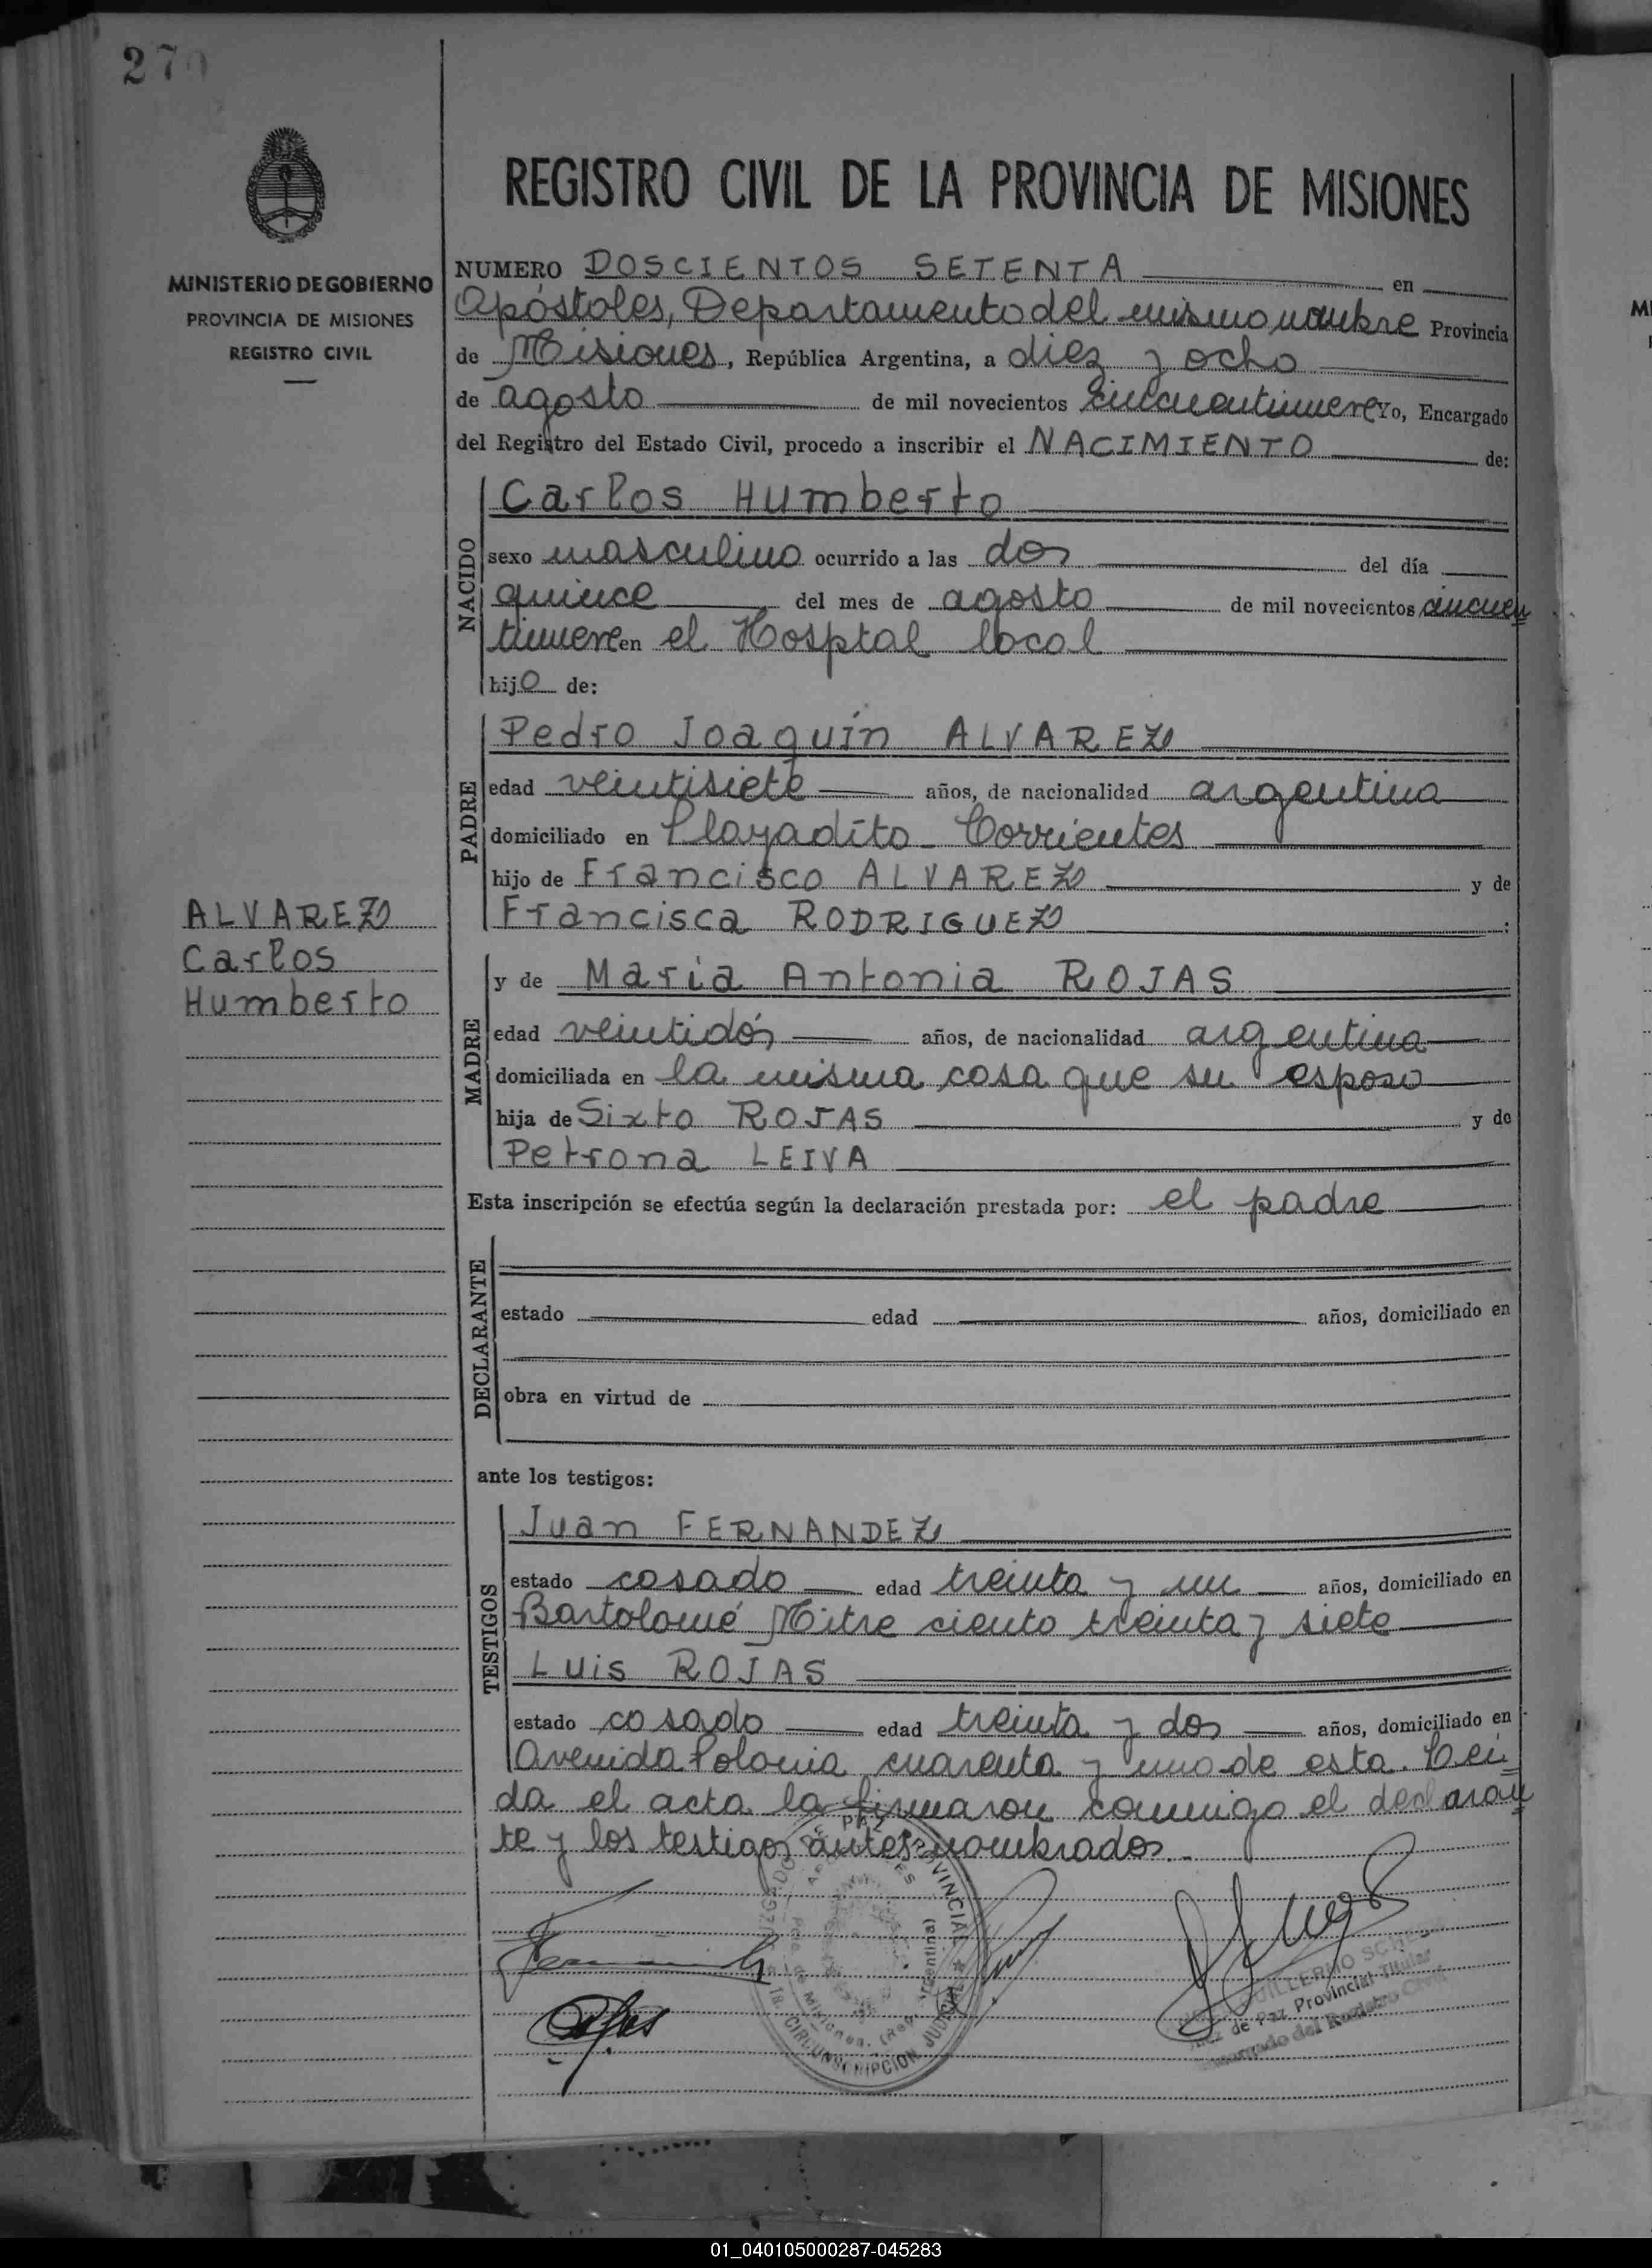 270
MINISTERIO DE GOBIERNO
PROVINCIA DE MISIONES
REGISTRO CIVIL
ALVAREZ
Carlos
Humberto
REGISTRO CIVIL DE LA PROVINCIA DE MISIONES
NUMERO DOSCIENTOS SETENTA en
Apóstoles, Departamento del mismo nombre Provincia
de Misiones, República Argentina, a diez y ocho
de agosto de mil novecientos cincuentinueve Yo, Encargado
del Registro del Estado Civil, procedo a inscribir el NACIMIENTO de:
NACIDO
Carlos Humberto
sexo masculino ocurrido a las dos del día
quince del mes de agosto de mil novecientos cincuen
tinueve en el Hosptal local
hijo de:
PADRE
Pedro Joaquín ALVAREZ
edad veintisiete años, de nacionalidad argentina
domiciliado en Playadito - Corrientes
hijo de Francisco ALVAREZ y de
Francisca RODRIGUEZ :
MADRE
y de Maria Antonia ROJAS
edad veintidós años, de nacionalidad argentina
domiciliada en la misma casa que su esposo
hija de Sixto ROJAS y de
Petrona LEIVA
Esta inscripción se efectúa según la declaración prestada por: el padre
DECLARANTE
estado edad años, domiciliado en
obra en virtud de
ante los testigos:
TESTIGOS
Juan FERNANDEZ
estado casado edad treinta y un años, domiciliado en
Bartolomé Mitre ciento treinta y siete
Luis ROJAS
estado casado edad treinta y dos años, domiciliado en
Avenida Polonia cuarenta y uno de esta. Lei
da el acta la firmaron conmigo el declaran
te y los testigos antes nombrados.-
JUZGADO DE PAZ PROVINCIAL
CIRCUNSCRIPCION JUDICIAL
Misiones. (Rep. Argentina)
GUILLERMO
Juez de Paz Provincial Titular
Encargado del Registro Civil
01_040105000287-045283